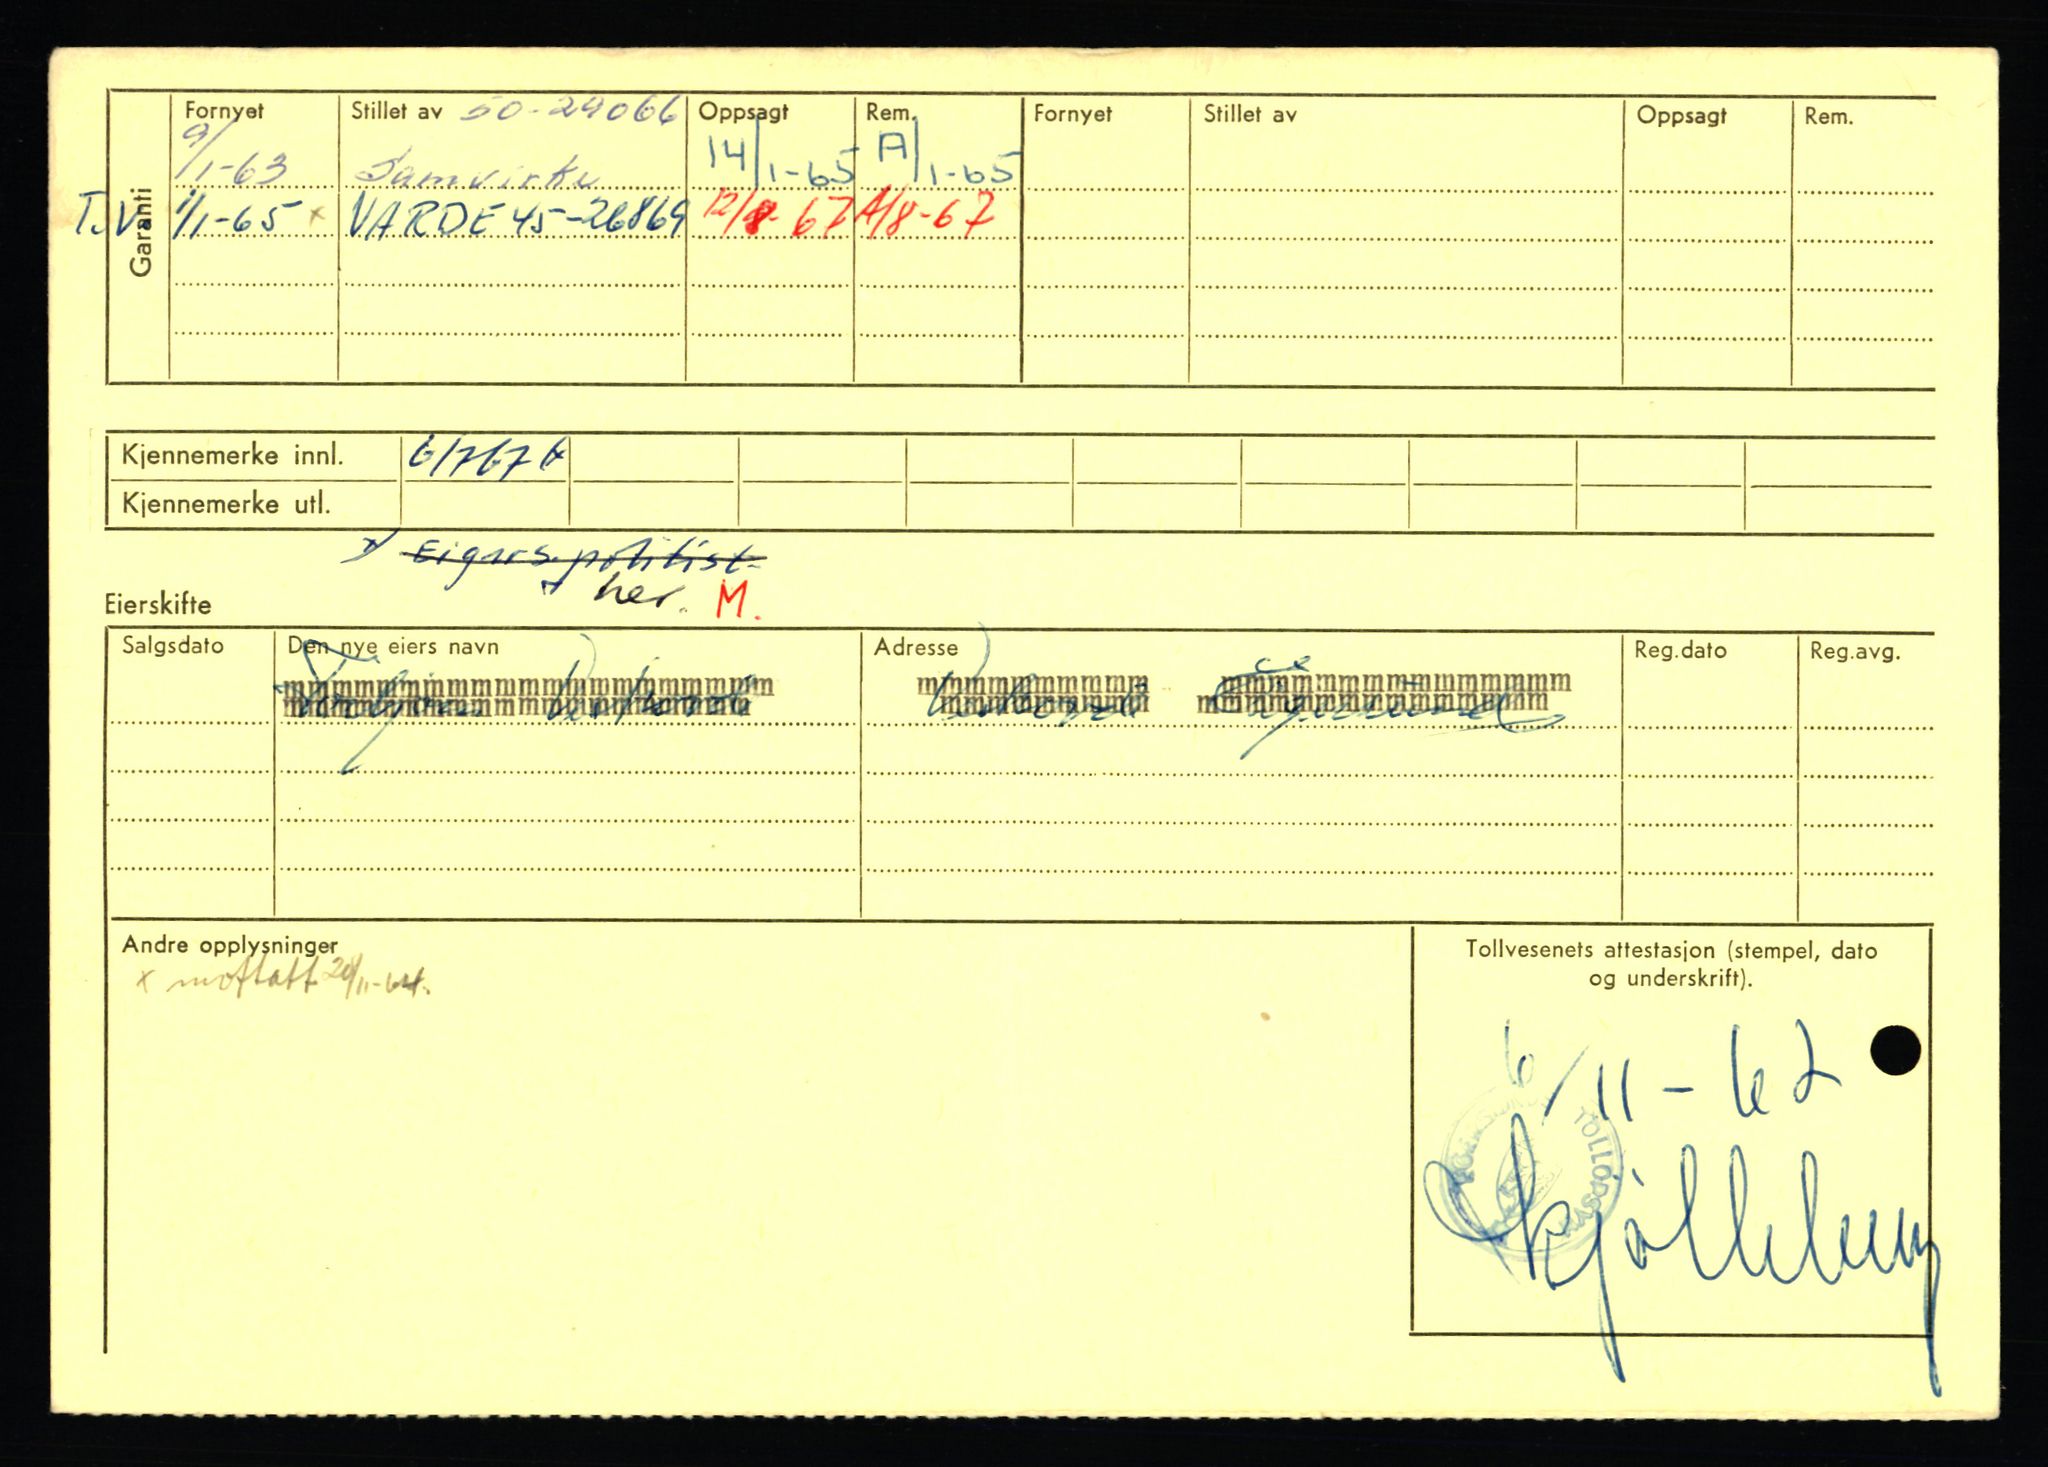 Garanti
Fornyet Stillet av 50-29066 Oppsagt Rem. Fornyet Stillet av Oppsagt Rem.
9/1-63 Samvirke 14/1-65 A/1-65
T.V. 1/1-65 x VARDE 45-26869 12/8-67 A/8-67
Kjennemerke innl. 6/767
Kjennemerke utl.
x) Eigars polisist.
her. M.
Eierskifte
Salgsdato Den nye eiers navn Adresse Reg.dato Reg.avg.
mmmmmmmmmmmmmmmmmmmmm mmmmmmmmmm mmmmmmmmmmmmmmm
Andre opplysninger
x mottatt 20/11-64.
Tollvesenets attestasjon (stempel, dato
og underskrift).
6/11-62
TOLLODSKASSE